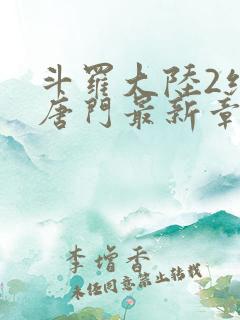 斗羅大陸2
唐門最新章
李增香
未经同意禁止转载